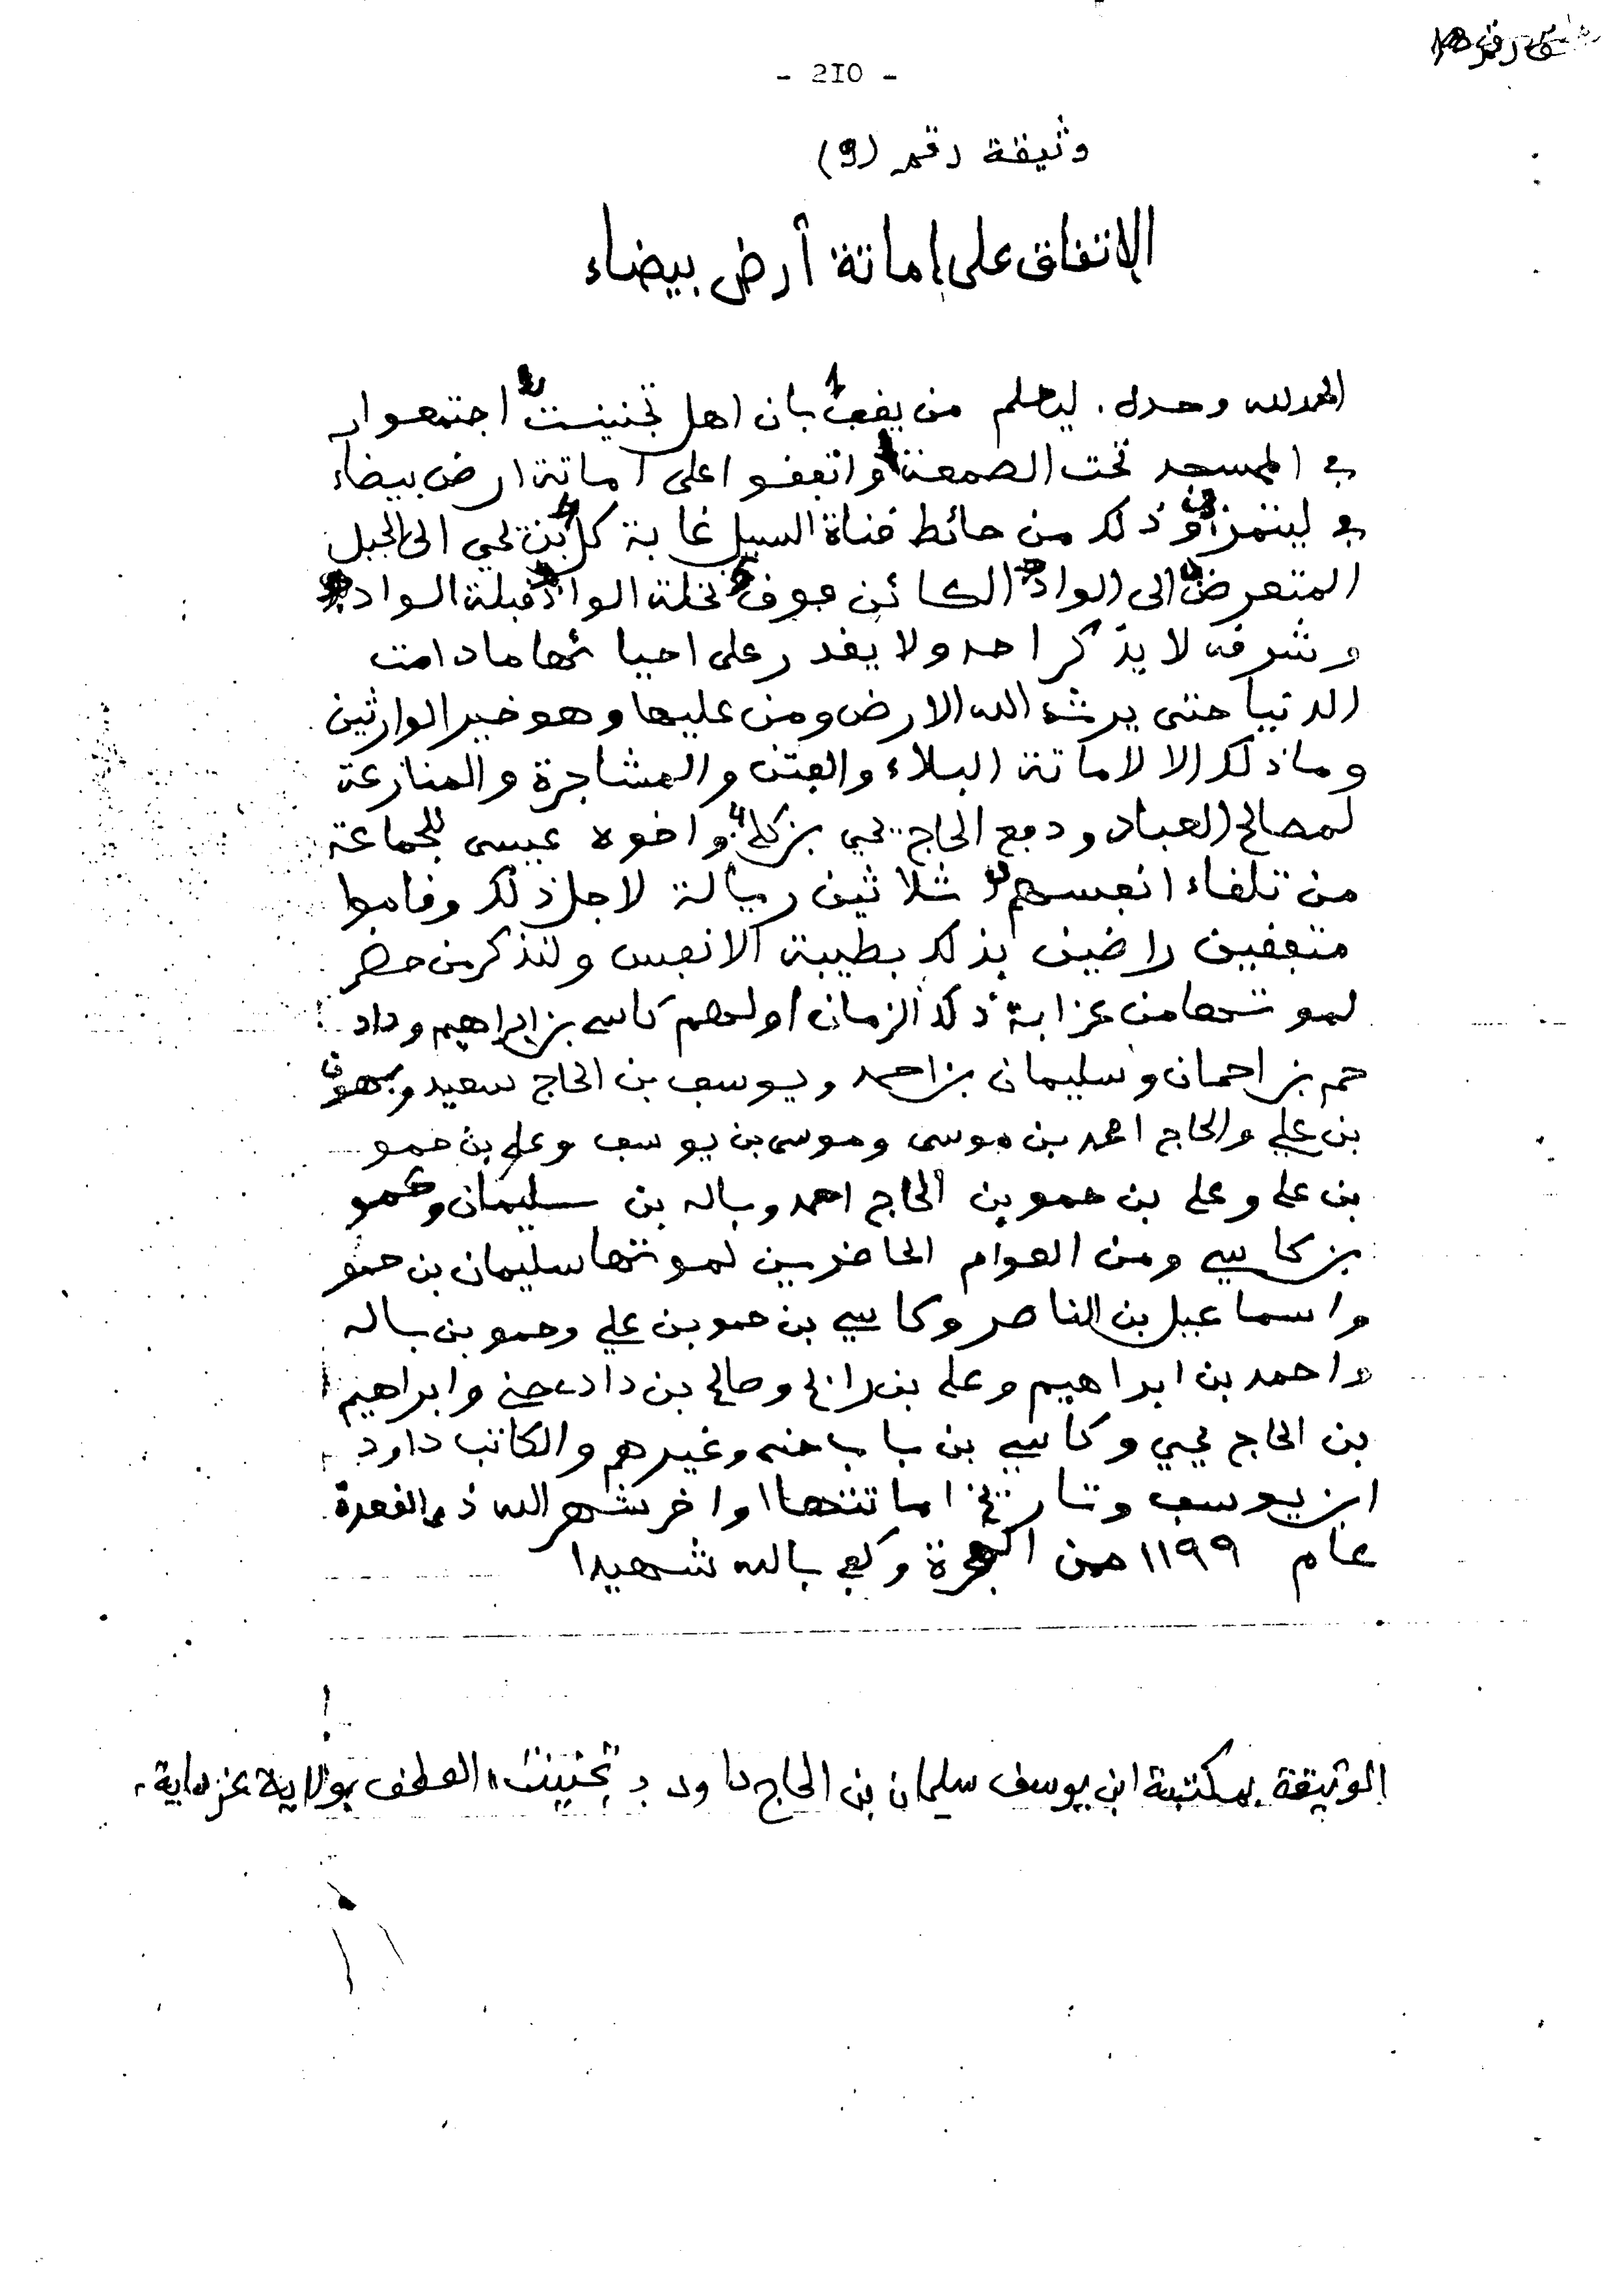 - 210 -
وثيقة رقم (9)
الاتفاق على إماتة أرض بيضاء
الحمد لله وحده. ليعلم من يفف بان اهل تجنينت اجتمعوا
في المسجد تحت الصمعة واتففوا على اماتة ارض بيضاء
في وذلك من حائط فناة السيل غابة كل بن يحي الى الجبل
المتعرض الى الواد الكائن جوف نخلة الواد فبلة الواد
وشرفه لا يذكر احد ولا يفدر على احيائها مادامت
الدنيا حتى يرث الله الارض ومن عليها وهو خير الوارثين
وما ذلك الا لاماتة البلاء والفتن والمشاجرة والمنازعة
لمصالح العباد ودفع الحاج يحي بن كل واخوه عيسى للجماعة
من تلفاء انفسهم ثلاثين ريالة لاجل ذلك وفاموا
متففين راضين بذلك بطيبة الانفس ولنذكر من حضر
لموتها من عزابة ذلك الزمان اولهم كاسي بن ابراهيم وداد
حم بن احمان وسليمان بن احمد ويوسف بن الحاج سعيد
بن علي والحاج احمد بن موسى وموسى بن يوسف وعلي بن حمو
بن علي وعلي بن حمو بن الحاج احمد وباله بن سليمان وحمو
بن كاسي ومن العوام الحاضرين لموتها سليمان بن حمو
واسماعيل بن الناصر وكاسي بن حمو بن علي وحمو بن باله
واحمد بن ابراهيم وعلي بن رابح وصالح بن داد وابراهيم
بن الحاج يحي وكاسي بن باباحنه وغيرهم والكاتب داود
ابن يوسف وتاريخ اماتتها اواخر شهر الله ذي الفعدة
عام ١١٩٩ من الهجرة وكفى بالله شهيدا
الوثيقة بمكتبة ابن يوسف سليمان بن الحاج داود بـ تجنينت "العطف بولاية غرداية.